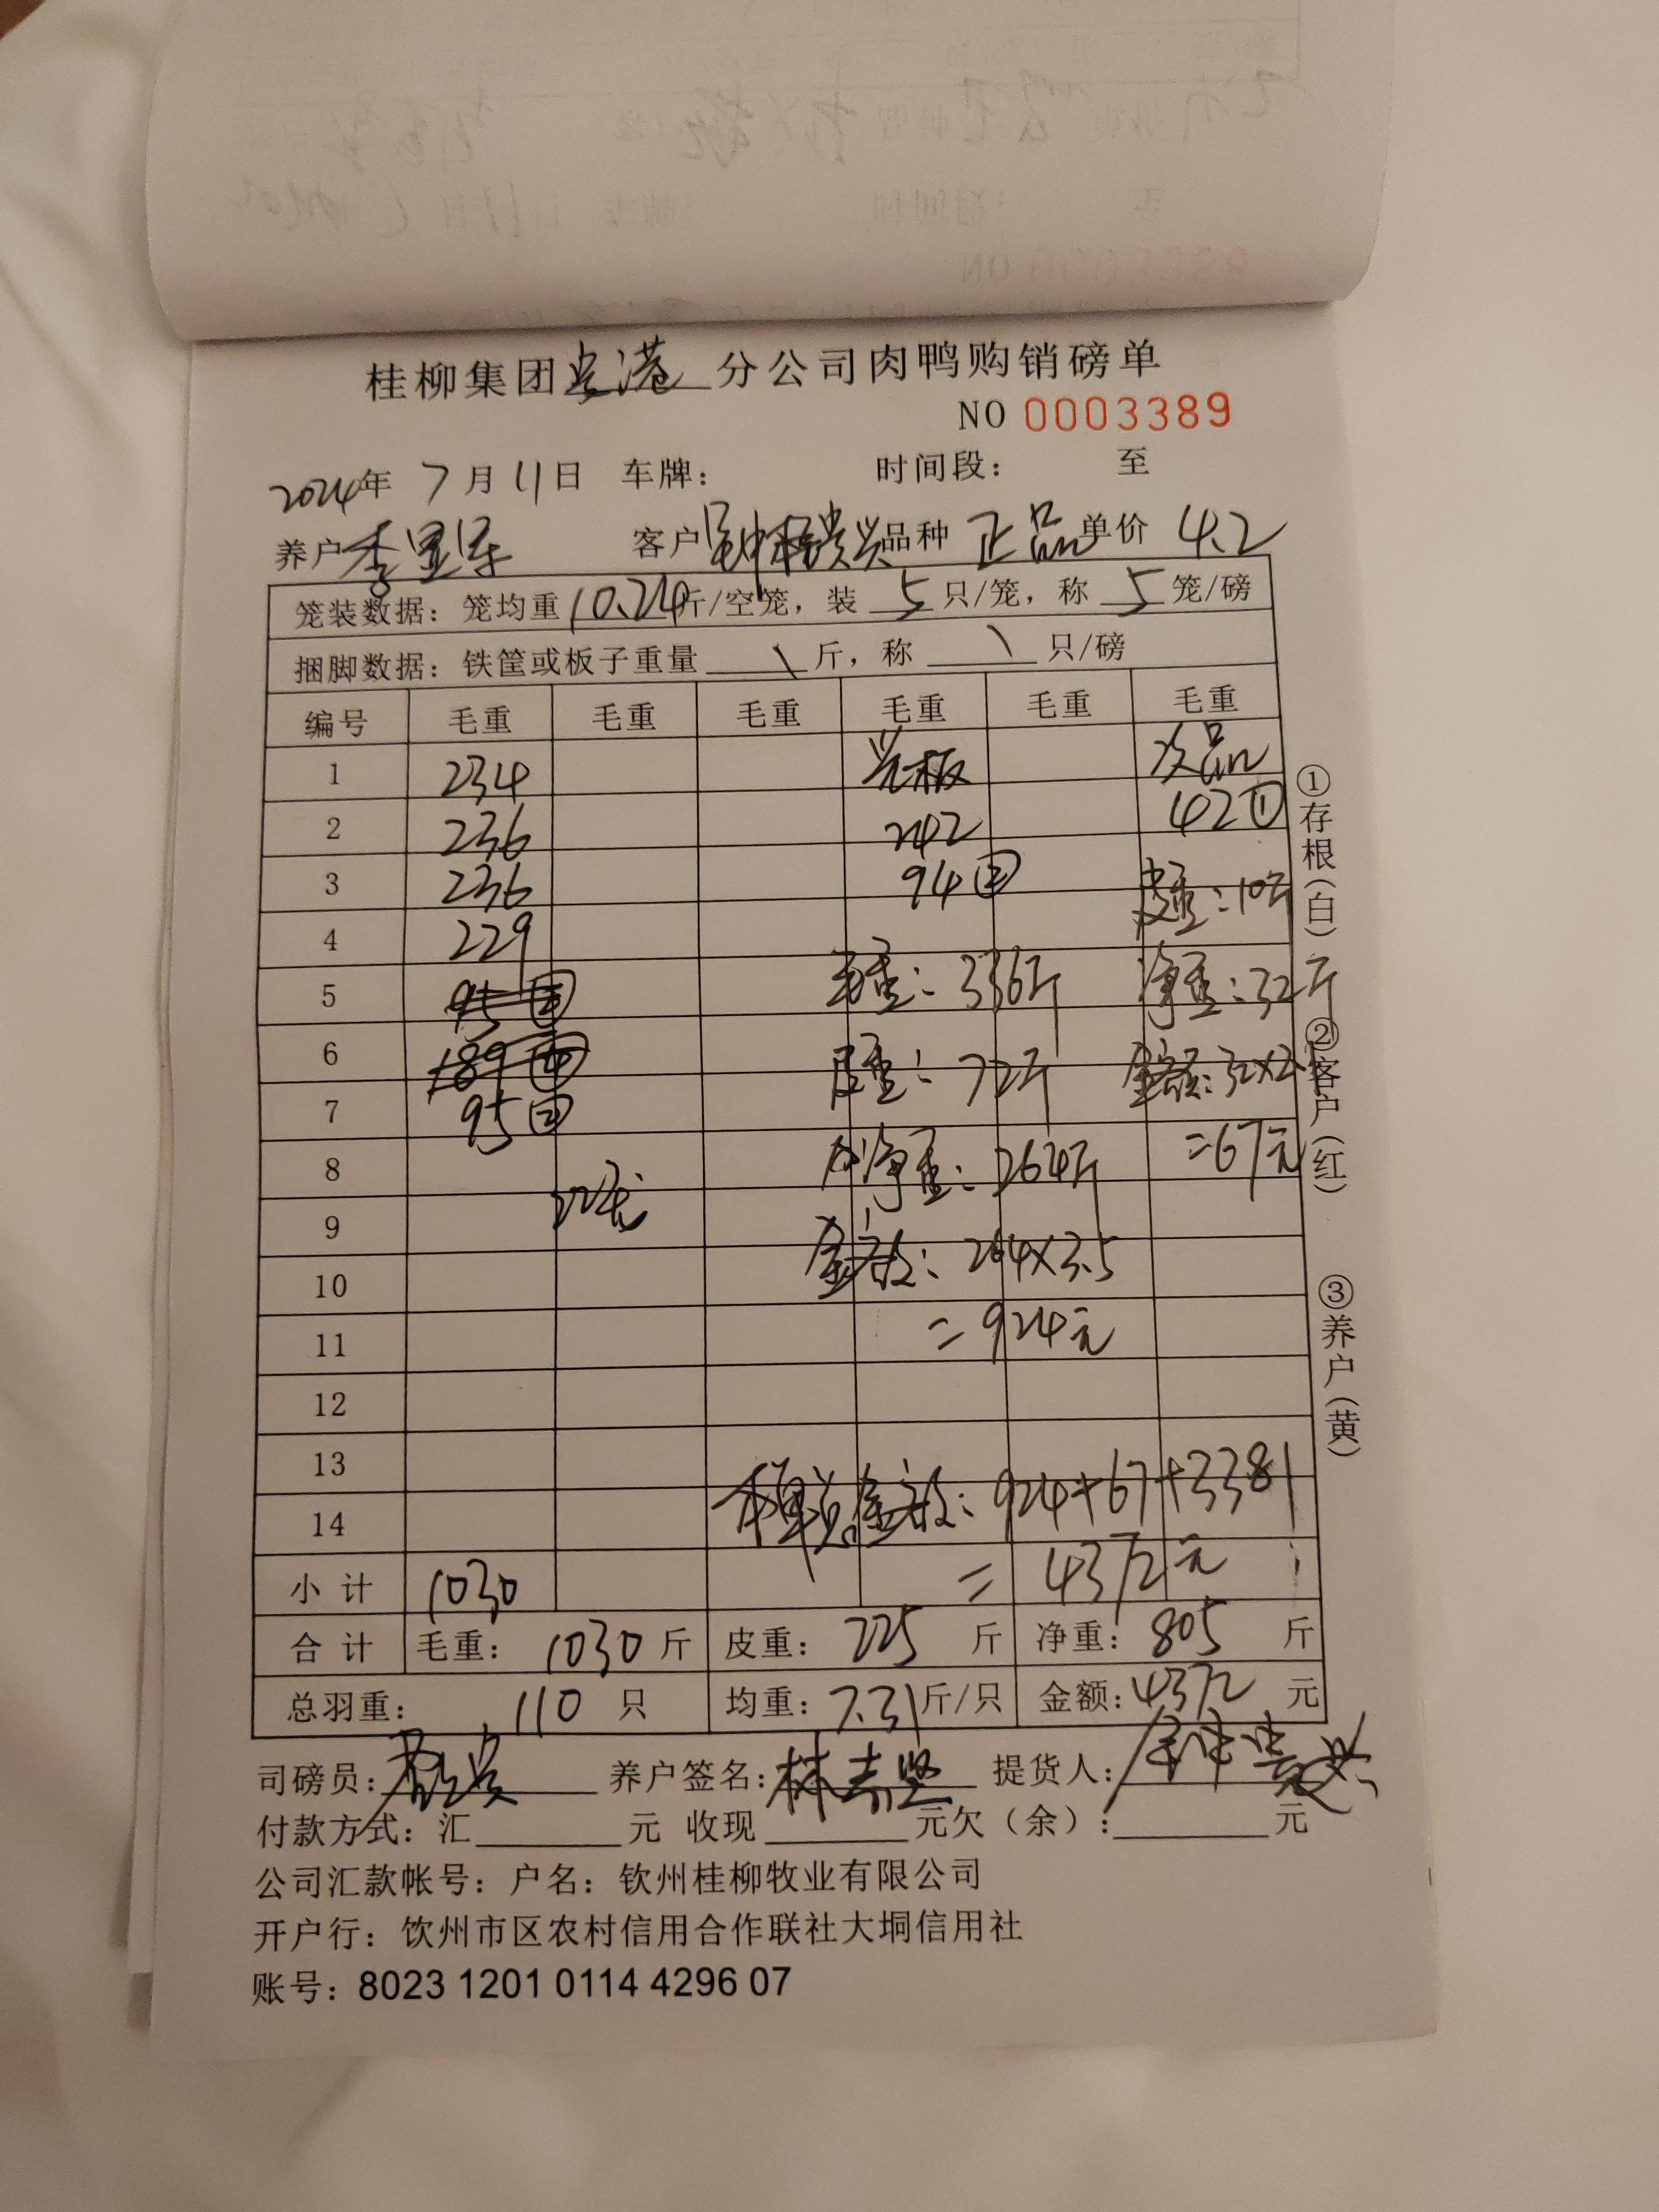 桂柳集团贵港分公司肉鸭购销磅单
NO 0003389
2024年 7月11日 车牌： 时间段： 至
养户 李显军 客户 钟贵兴 品种 正品 单价 4.2
笼装数据：笼均重10.24斤/空笼，装 5 只/笼，称 5 笼/磅
捆脚数据：铁筐或板子重量 \ 斤，称 \ 只/磅
编号 毛重 毛重 毛重 毛重 毛重 毛重
1 234 光板 次品
2 236 242 42①
3 236 94② 皮重：10斤
4 229
5 毛重：336斤 净重：32斤
6 皮重：72斤 金额：32×2.1
7 95②
8 净重：264斤 =67元
9 22笼
10 金额：264×3.5
11 =924元
12
13
14 本单总金额：924+67+3381
小计 1030 = 4372元
合计 毛重： 1030 斤 皮重： 225 斤 净重： 805 斤
总羽重： 110 只 均重：7.31斤/只 金额：4372 元
司磅员： 养户签名：林志坚 提货人：钟贵兴
付款方式：汇 元 收现 元欠（余）： 元
公司汇款帐号：户名：钦州桂柳牧业有限公司
开户行：饮州市区农村信用合作联社大垌信用社
账号：8023 1201 0114 4296 07
①存根（白）
②客户（红）
③养户（黄）